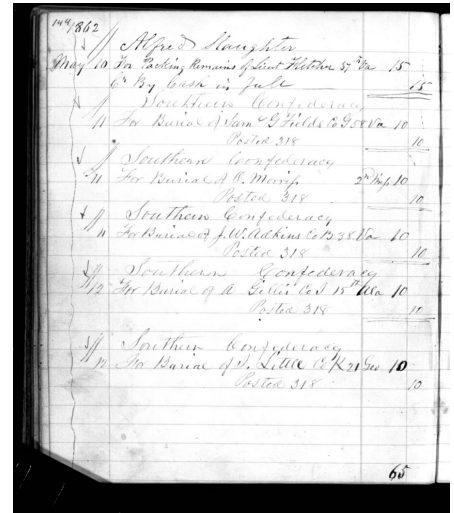 144 1862
Alfred Slaughter
May 10 For Packing Remains of Lieut Fletcher 57th Va 15
Cr By Cash in full 15
Southern Confederacy
11 For Burial of Saml G Fields Co G 58 Va 10
Posted 318 10
Southern Confederacy
11 For Burial of R. Morris 2nd Miss 10
Posted 318 10
Southern Confederacy
11 For Burial of J. W. Adkins Co B 38 Va 10
Posted 318 10
Southern Confederacy
12 For Burial of A Gillis Co I 15th Ala 10
Posted 318 10
Southern Confederacy
12 For Burial of J. Little Co K 21 Geo 10
Posted 318 10
65